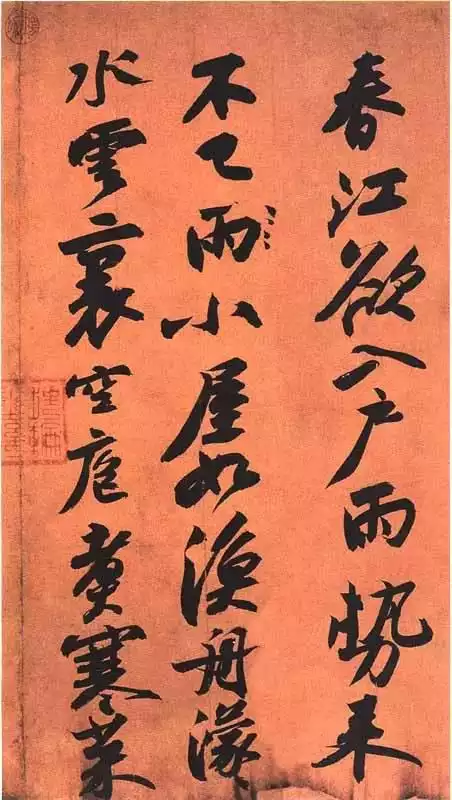 春江欲入戶雨勢来
不已雨小屋如漁舟濛〻
水雲裏空庖煑寒菜